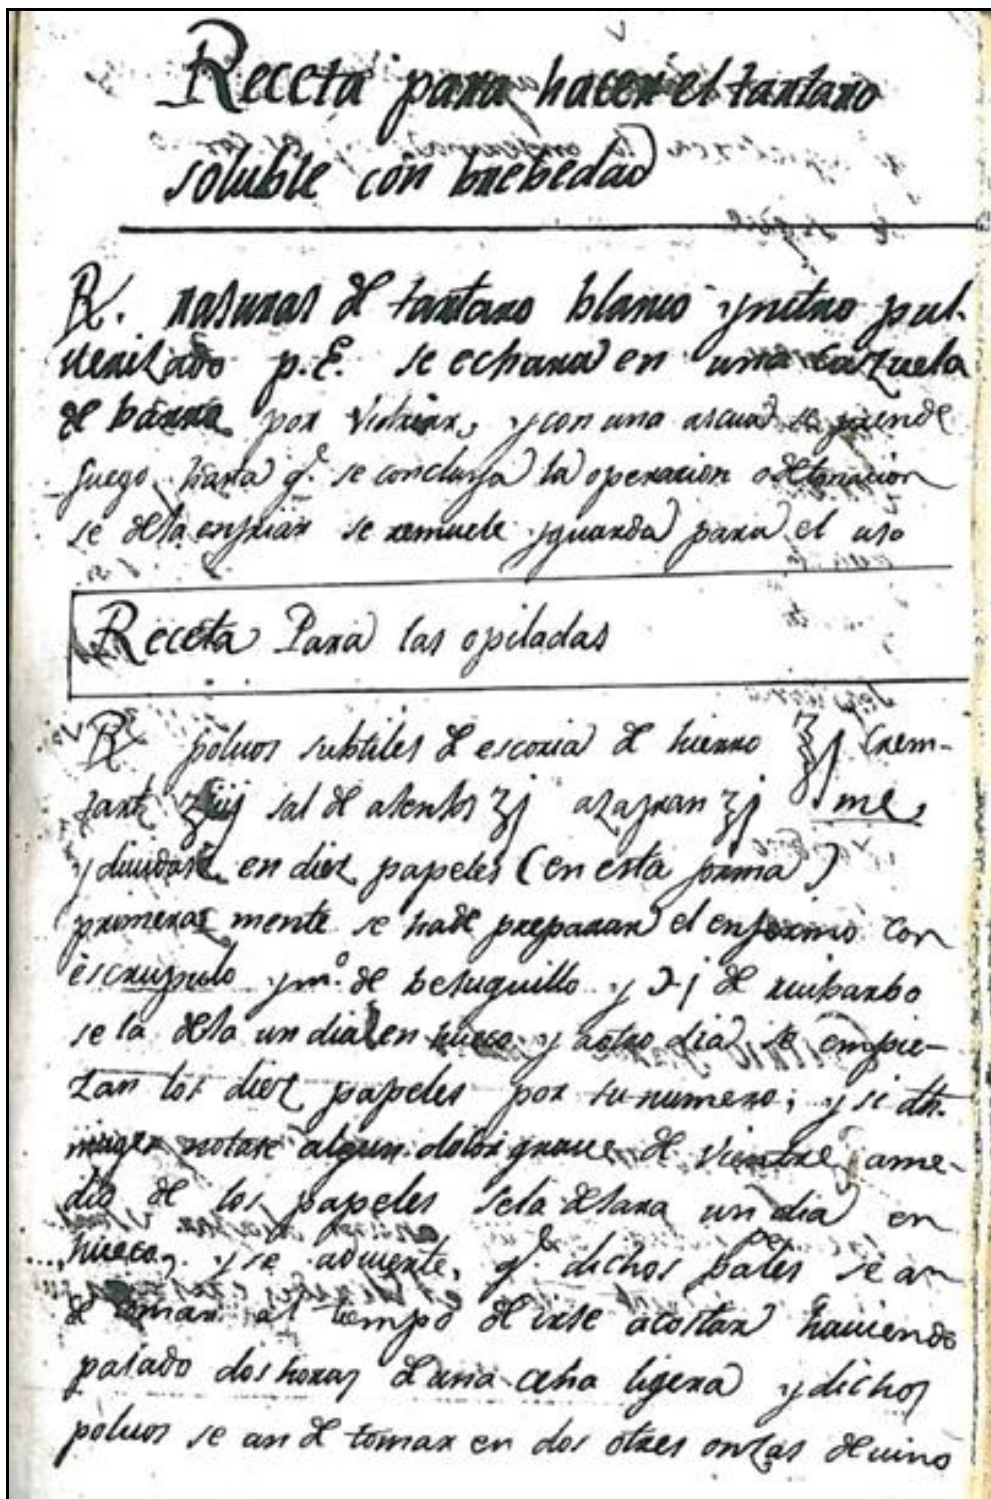 Receta para hacer el tartaro
soluble con brebedad
R. rasuras de tartaro blanco y nitro pul-
verizado p. E. se echara en una cazuela
de barro por vidriar, y con una ascua se prende
fuego, hasta q.e se concluya la operacion o detonacion
se deja enfriar se remuele y guarda para el uso
Receta Para las opiladas
R polvos subtiles de escoria de hierro ℥j Crem-
tart. sal de asentos ʒj azafran ʒj me,
y dividase en diez papeles (en esta forma)
primeras mente se hade preparar el enfermo con
escrupulo y m.o de bejuquillo y ℈j de ruibarbo
se la deja un dia en hueco y aotro dia se empie-
zan los diez papeles por su numero; y si dha.
muger notase algun dolor grave de vientre ame-
dio de los papeles sela dejara un dia en
hueco, y se advierte, q.e dichos papeles se an
de tomar al tiempo de irse acostar haviendo
pasado dos horas de una cena ligera y dichos
polvos se an de tomar en dos otres onzas de vino